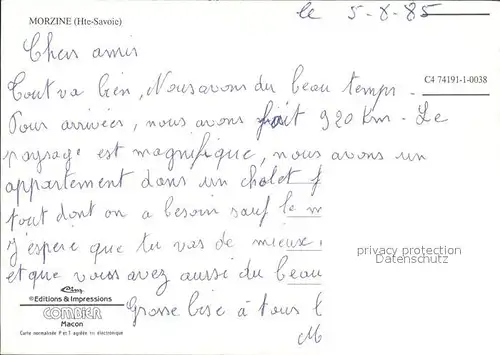 MORZINE (Hte-Savoie)
le 5-8-85
Chers amis
C4 74191-1-0038
Tout va bien, Nous avons du beau temps -
Pour arrivées, nous avons fait 920 Km - Le
paysage est magnifique, nous avons un
appartement dans un chalet
tout dont on a besoin sauf le m
J'espère que tu vas de mieux
et que vous avez aussi du beau
privacy protection
Datenschutz
Grosse bise à tous
©Editions & Impressions
COMBIER
Macon
Carte normalisée P et T agréée tri électronique
M